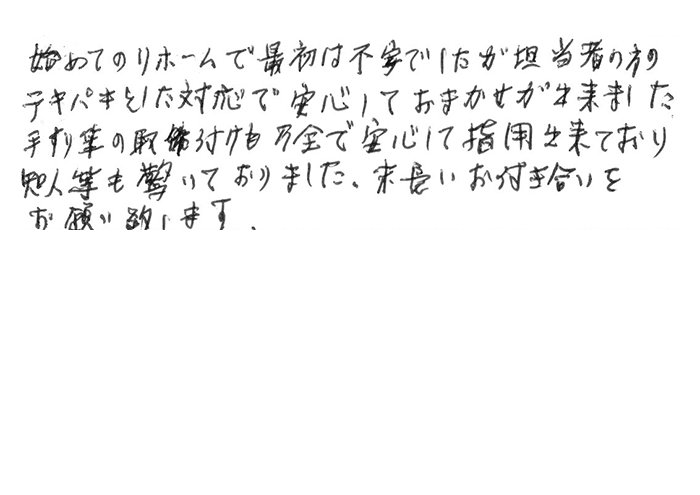 始めてのリホームで最初は不安でしたが担当者の方の
テキパキとした対応で安心しておまかせが出来ました
手すり等の取締付けも万全で安心して指用出来ており
知人等も驚いておりました、末長いお付き合いを
お願い致します。